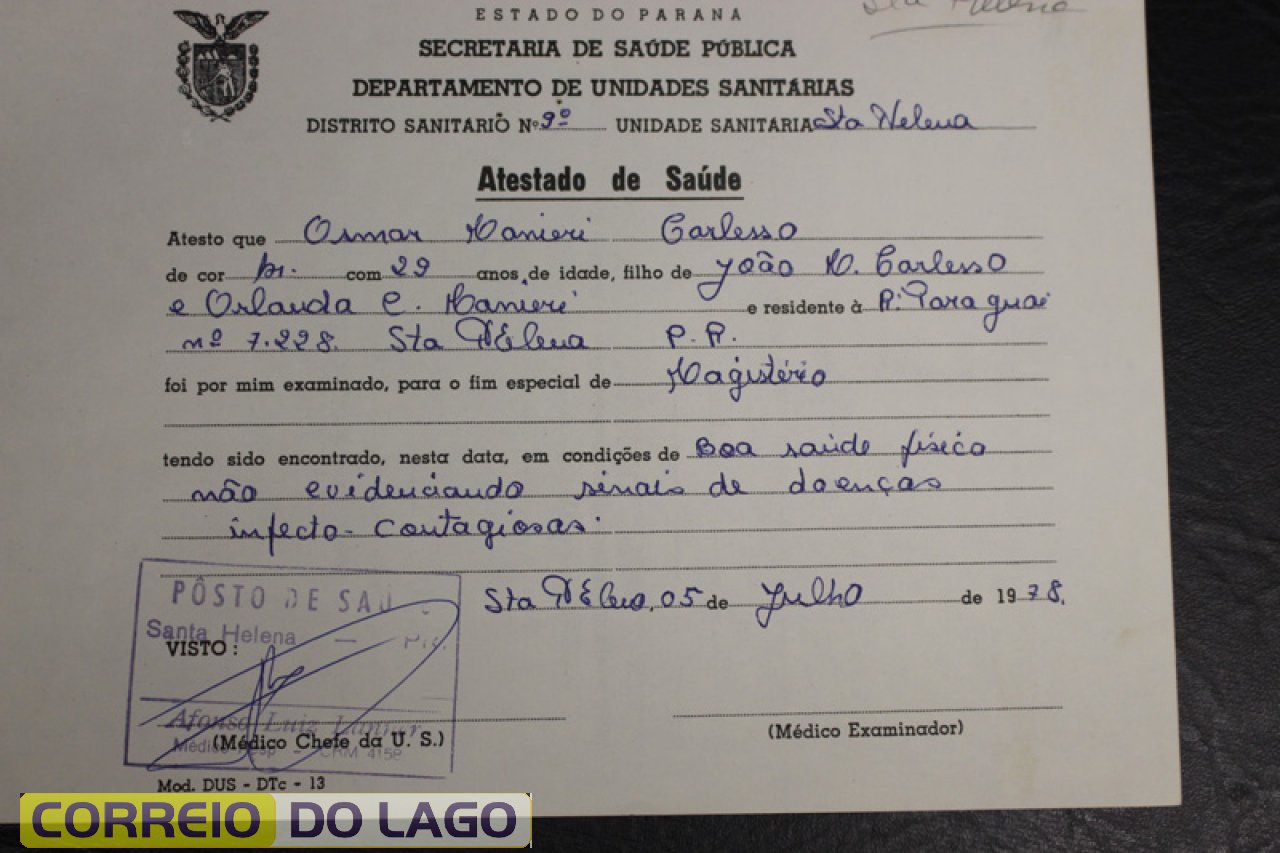 Sta Helena
ESTADO DO PARANÁ
SECRETARIA DE SAÚDE PÚBLICA
DEPARTAMENTO DE UNIDADES SANITÁRIAS
DISTRITO SANITARIO Nº 9º UNIDADE SANITARIA Sta Helena
Atestado de Saúde
Atesto que Osmar Manieri Carlesso
de cor br. com 29 anos de idade, filho de João M. Carlesso
e Orlanda C. Manieri e residente à R: Paraguai
nº 7.228. Sta Helena P.R.
foi por mim examinado, para o fim especial de Magistério
tendo sido encontrado, nesta data, em condições de Boa saúde física
não evidenciando sinais de doenças
infecto-contagiosas.
Sta Helena, 05 de Julho de 1978.
PÔSTO DE
Santa Helena —
VISTO:
Afonso Luiz
(Médico Chefe da U. S.)
CRM 4158
(Médico Examinador)
Mod. DUS - DTc - 13
CORREIO DO LAGO